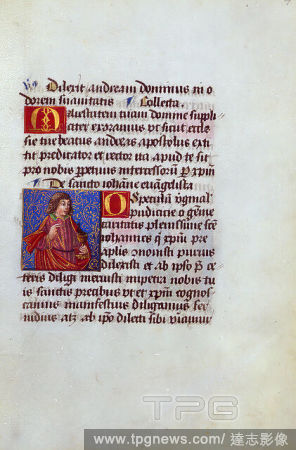 Dilexit andream dominus in o
dorem suauitatis Collecta
Maiestatem tuam domine suppli
citer exoramus ut sicut eccle
sie tue beatus andreas apostolus exti
tit predicator et rector ita apud te sit
pro nobis perpetuus intercessor P xpm
De sancto iohanne euangelista
O Speculum
pudicicie o
caritatis plenissime
iohannes q xpm pre
aplis monsti purius
dilexisti et ab ipso p ce
teris diligi meruisti impetra nobis tu
is sanctis precibus ut et xpm cognos
camus manifestius diligamus fer
uidius atq ab ipo dilecti sibi viuamus
TPG
www.tpgnews.com / 達志影像